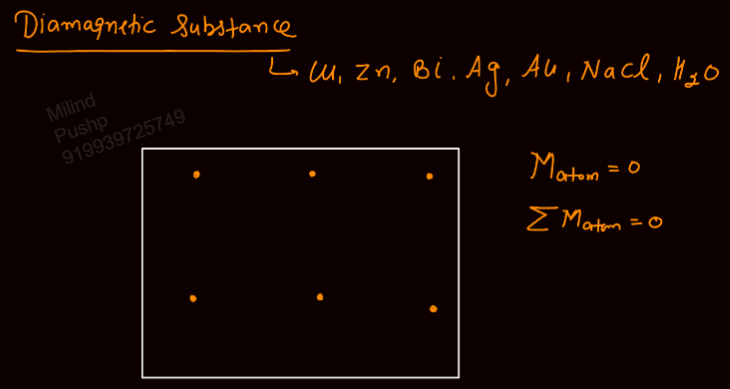 Diamagnetic Substance
Cu, Zn, Bi. Ag, Au, NaCl, H2O
Milind
Pushp
919939725749
Matom = 0
∑ Matom = 0